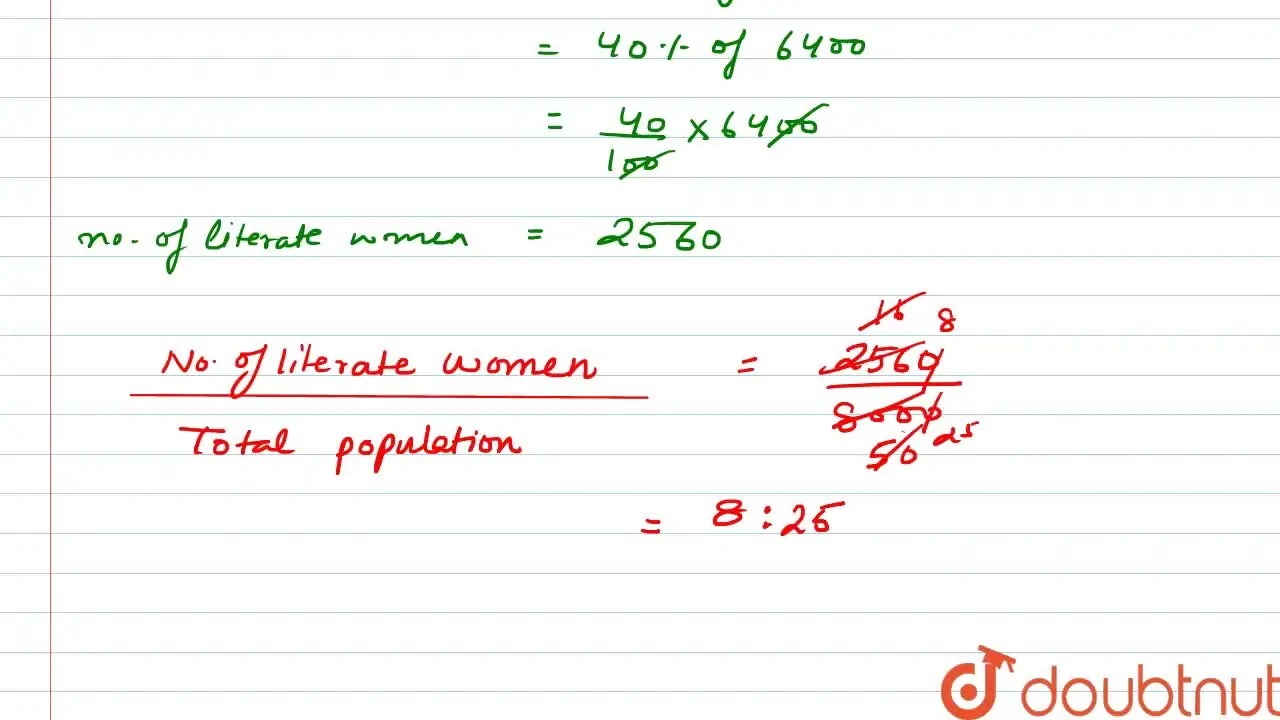 = 40% of 6400
= 40/100 × 6400
no. of literate women = 2560
16 8
No. of literate women = 2560
Total population 8000
50 25
= 8 : 25
doubtnut